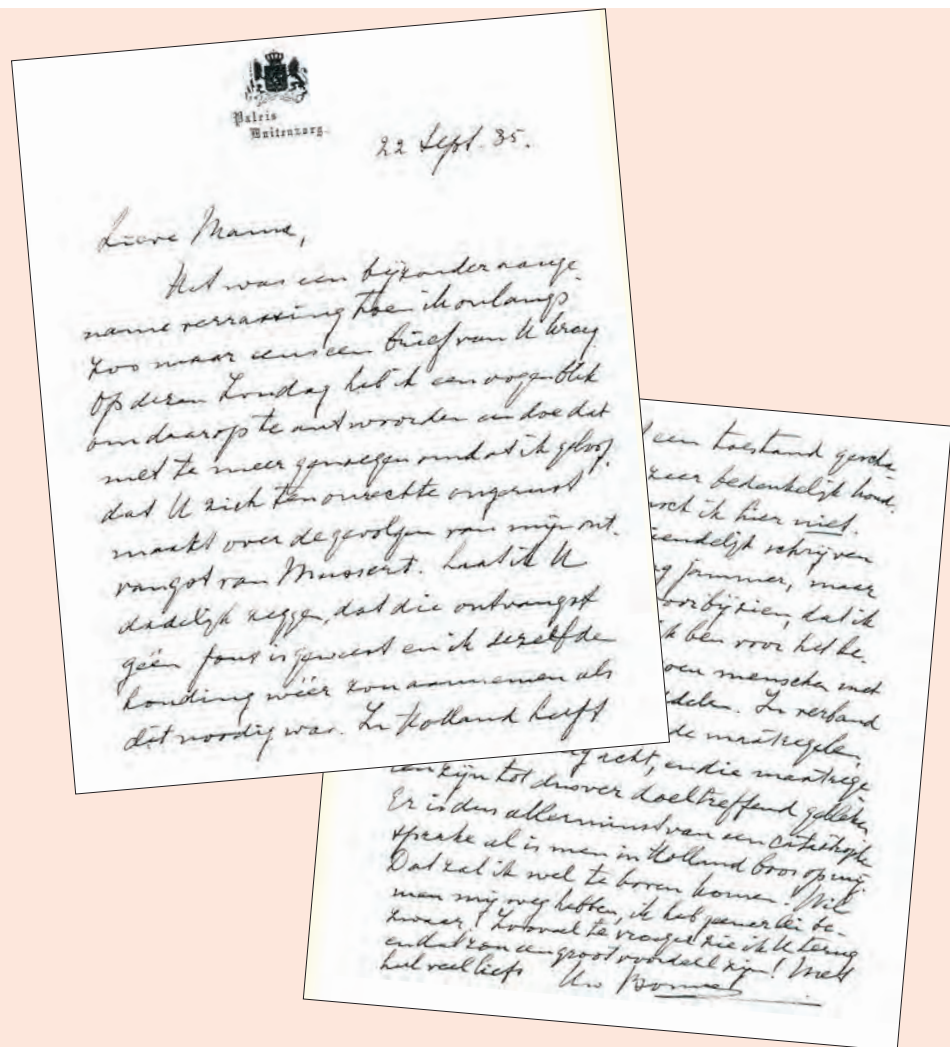 Paleis
Buitenzorg
22 Sept. 35.
Lieve Mama,
Het was een bijzonder aange
name verrassing toen ik onlangs
zoo maar eens een brief van U kreeg
Op dezen Zondag heb ik een oogenblik
om daarop te antwoorden en doe dat
met te meer genoegen omdat ik geloof
dat U zich ten onrechte ongerust
maakt over de gevolgen van mijn ont.
vangst van Mussert. Laat ik U
dadelijk zeggen, dat die ontvangst
géén fout is geweest en ik dezelfde
houding wéér zou aannemen als
dit noodig was. In Holland heeft
een toestand
zeer bedenkelijk houd.
ik hier niet.
schrijven
jammer, maar
voorbijzien, dat ik
ik ben voor het be.
menschen met
In verband
de maatregelen
acht, en die maatrege
len zijn tot dusver doeltreffend gebleken
Er is dus allerminst van een catastrophe
sprake al is men in Holland boos op mij.
Dat zal ik wel te boven komen! Wil
men mij weg hebben, ik heb generlei be-
zwaar! Zooveel te vroeger zie ik U terug
en dat zou een groot voordeel zijn! Met
heel veel liefs Uw